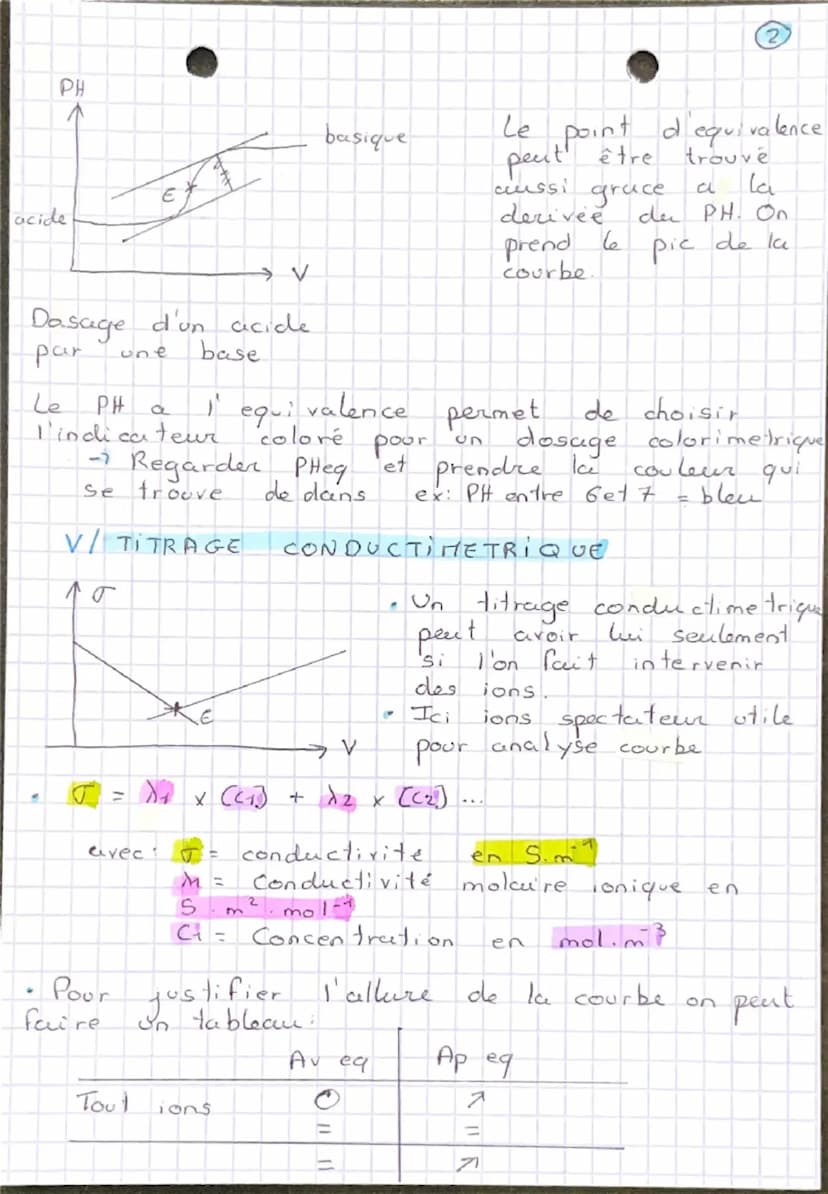 2
PH
basique
E
acide
V
Le point d'equivalence
peut être trouvé
aussi grace a la
derivée du PH. On
prend le pic de la
courbe.
Dosage d'un acide
par une base
Le PH a l'equivalence permet de choisir
l'indicateur coloré pour un dosage colorimetrique
→ Regarder PHeq et prendre la couleur qui
se trouve dedans ex: PH entre 6 et 7 = bleu
V/ TITRAGE CONDUCTIMETRIQUE
σ
E
V
• Un titrage conductimetrique
peut avoir lui seulement
si l'on fait intervenir
des ions.
• Ici ions spectateur utile
pour analyse courbe
• σ = λ1 × [C1] + λ2 × [C2] ...
avec: σ = conductivité en S.m⁻¹
λ1 = Conductivité molaire ionique en
S.m².mol⁻¹
C1 = Concentration en mol.m⁻³
• Pour justifier l'allure de la courbe on peut
faire un tableau:
Av eq Ap eq
Tout ions O ↗
= =
= ↗